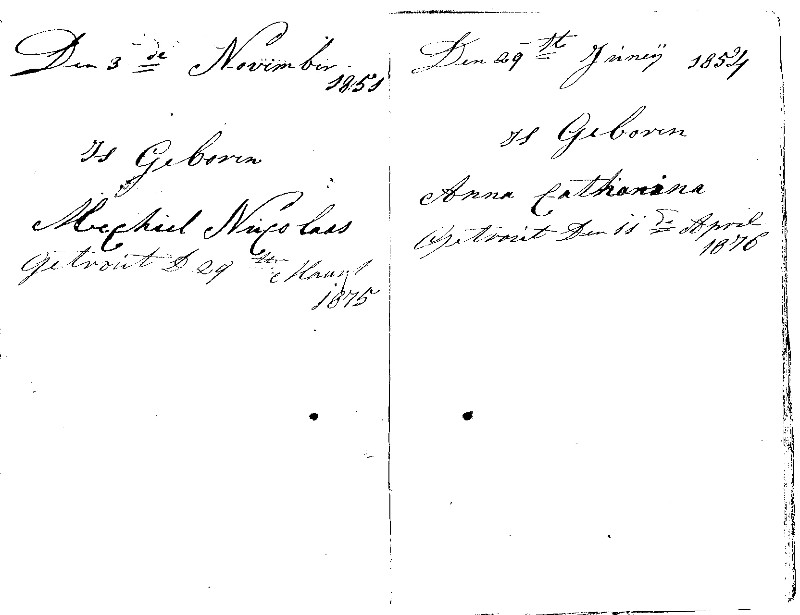 Den 3 de Novimber
1851
Is Geboren
Mechiel Nicolaas
Getrout D 29 ste Maart
1875
Den 29 st Juneij 1854
Is Geboren
Anna Catharina
Getrout Den 11 de April
1876